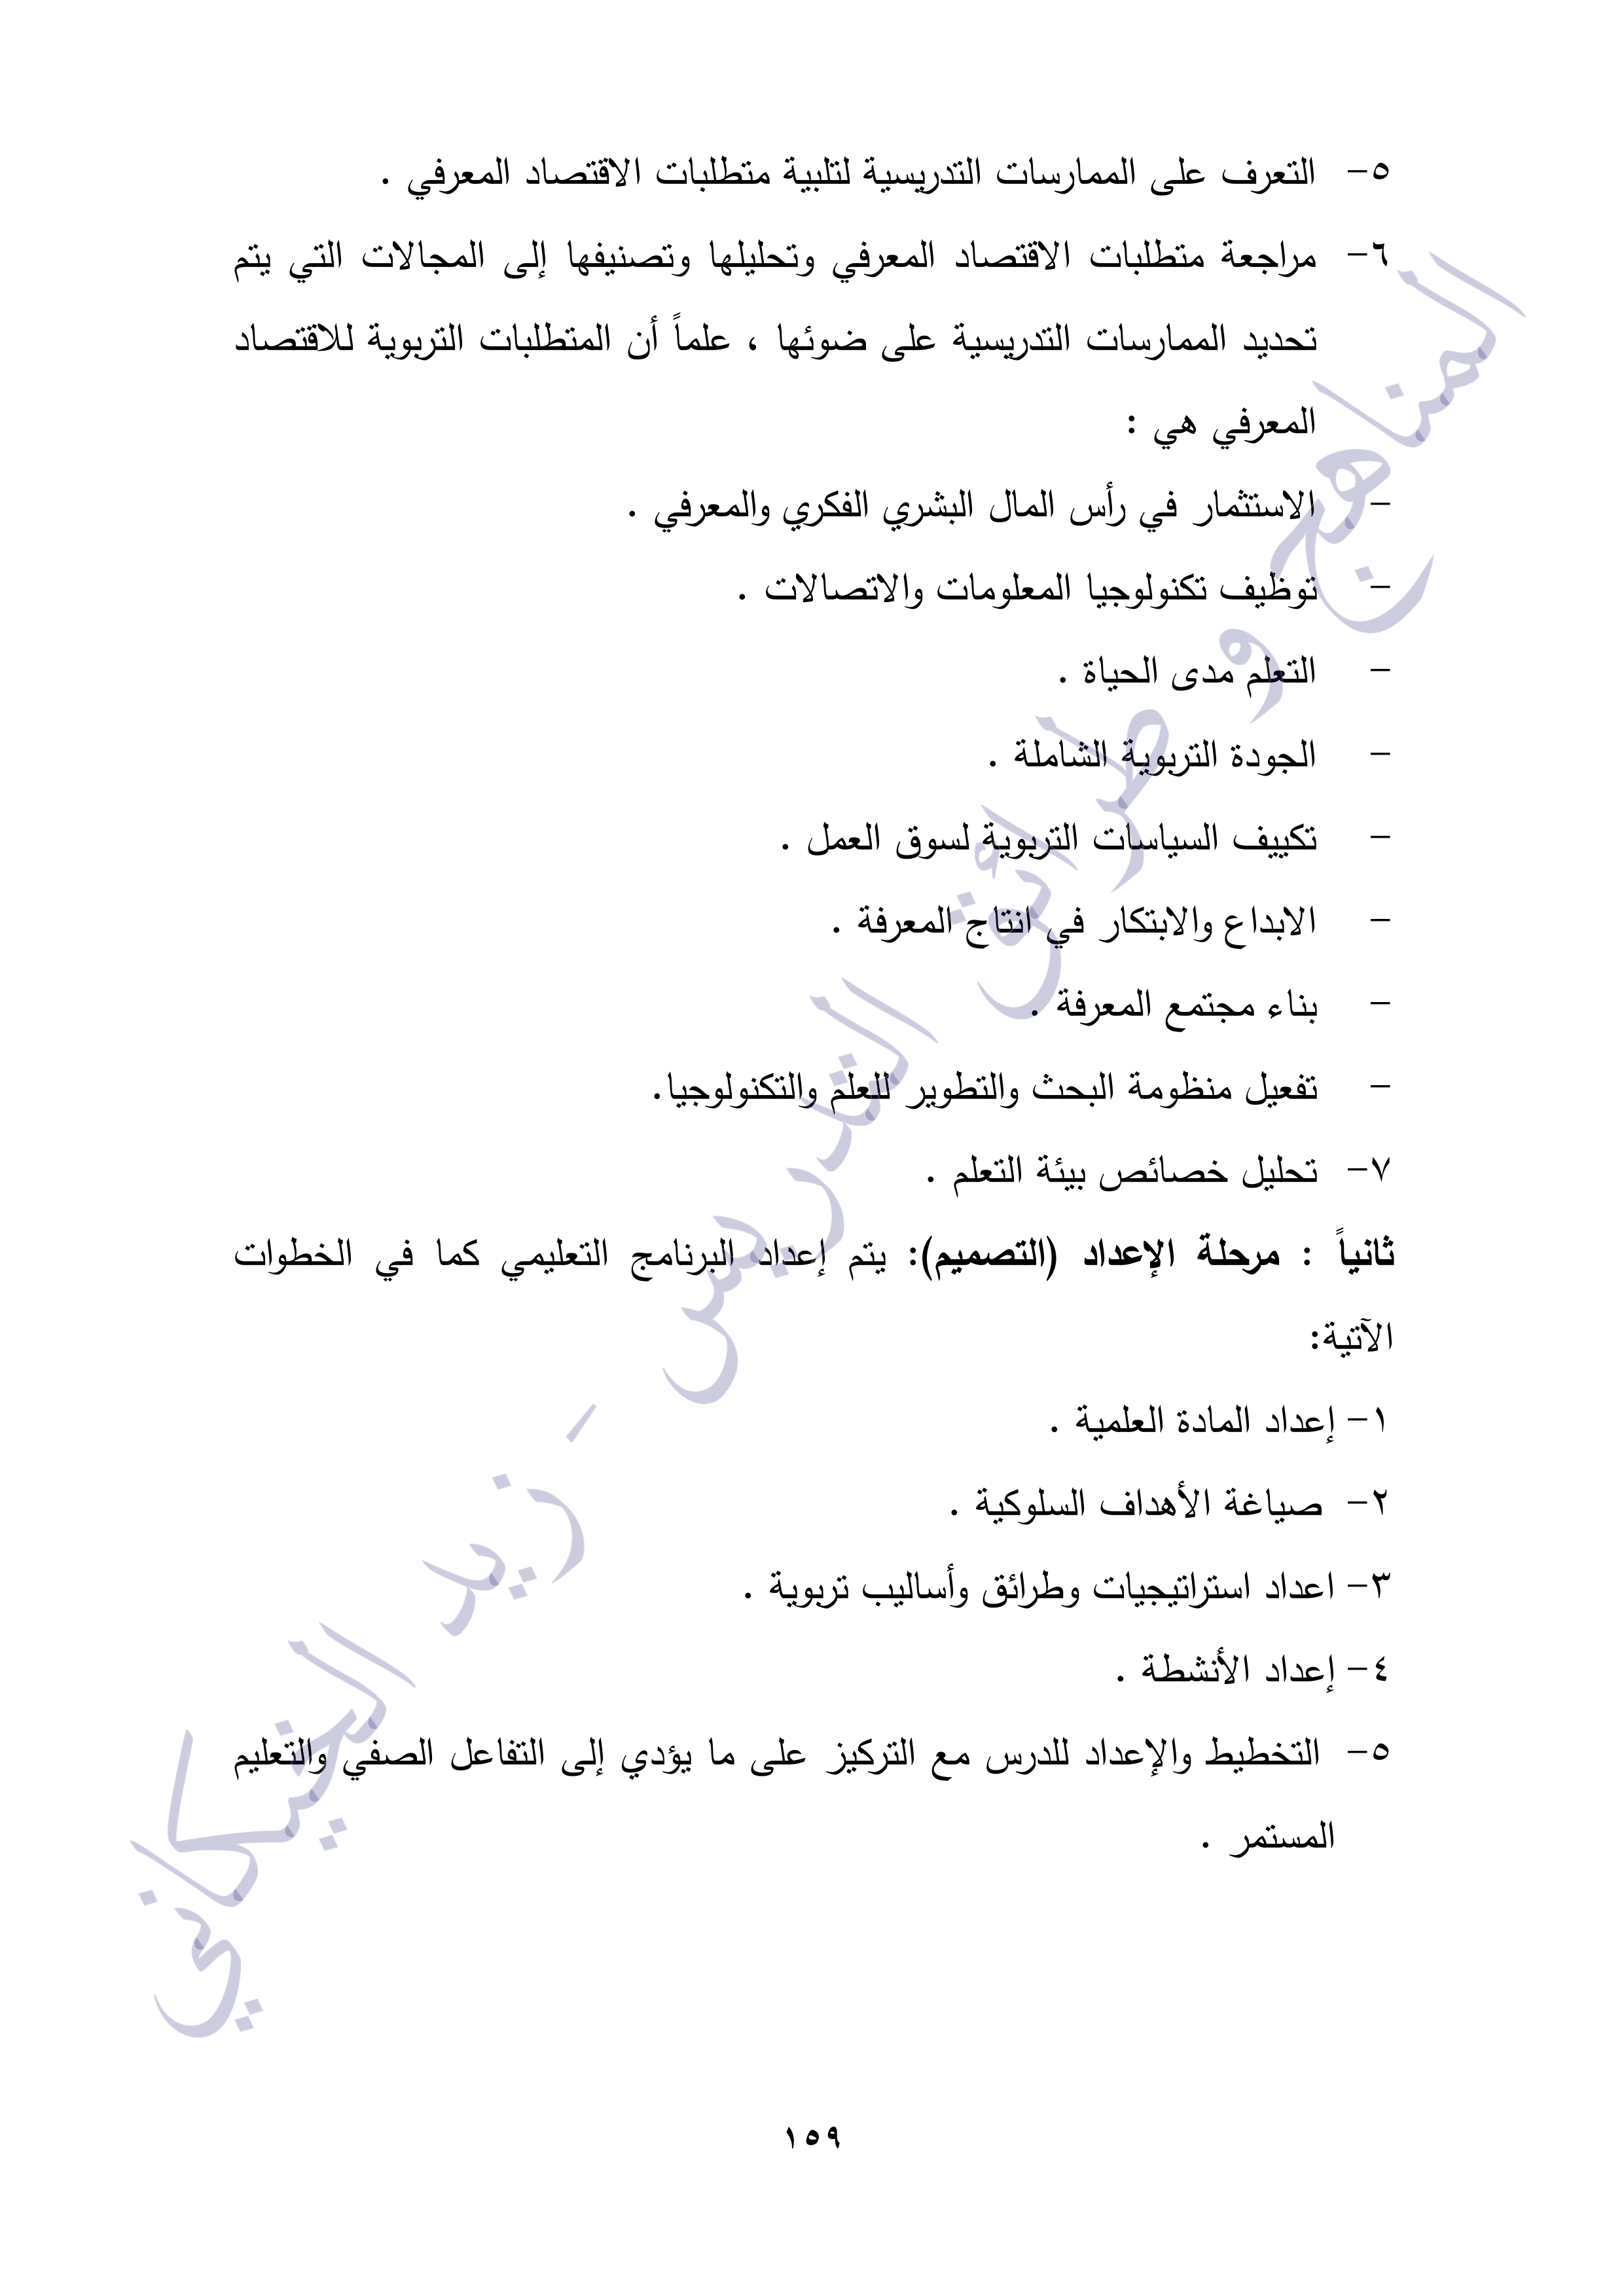 ٥- التعرف على الممارسات التدريسية لتلبية متطلبات الاقتصاد المعرفي .
٦- مراجعة متطلبات الاقتصاد المعرفي وتحليلها وتصنيفها إلى المجالات التي يتم
تحديد الممارسات التدريسية على ضوئها ، علماً أن المتطلبات التربوية للاقتصاد
المعرفي هي :
- الاستثمار في رأس المال البشري الفكري والمعرفي .
- توظيف تكنولوجيا المعلومات والاتصالات .
- التعلم مدى الحياة .
- الجودة التربوية الشاملة .
- تكييف السياسات التربوية لسوق العمل .
- الابداع والابتكار في انتاج المعرفة .
- بناء مجتمع المعرفة .
- تفعيل منظومة البحث والتطوير للعلم والتكنولوجيا.
٧- تحليل خصائص بيئة التعلم .
ثانياً : مرحلة الإعداد (التصميم): يتم إعداد البرنامج التعليمي كما في الخطوات
الآتية:
١- إعداد المادة العلمية .
٢- صياغة الأهداف السلوكية .
٣- اعداد استراتيجيات وطرائق وأساليب تربوية .
٤- إعداد الأنشطة .
٥- التخطيط والإعداد للدرس مع التركيز على ما يؤدي إلى التفاعل الصفي والتعليم
المستمر .
المناهج و طرائق التدريس - زيد الخيكاني
١٥٩